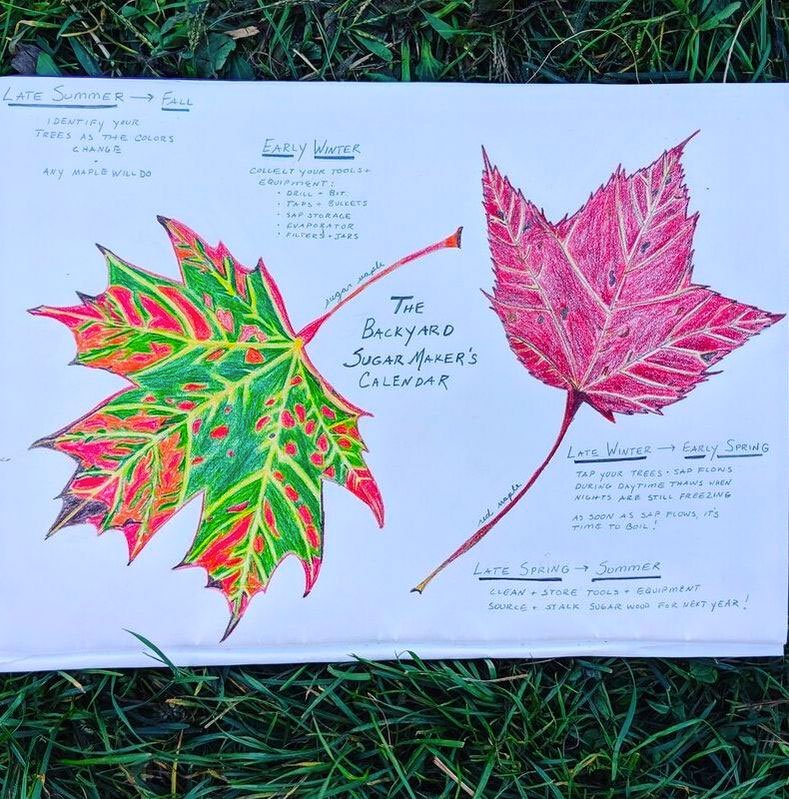 LATE SUMMER → FALL
IDENTIFY YOUR
TREES AS THE COLORS
CHANGE
•
ANY MAPLE WILL DO
EARLY WINTER
COLLECT YOUR TOOLS +
EQUIPMENT:
• DRILL + BIT
• TAPS + BUCKETS
• SAP STORAGE
• EVAPORATOR
• FILTERS + JARS
sugar maple
THE
BACKYARD
SUGAR MAKER'S
CALENDAR
red maple
LATE WINTER → EARLY SPRING
TAP YOUR TREES • SAP FLOWS
DURING DAYTIME THAWS WHEN
NIGHTS ARE STILL FREEZING
AS SOON AS SAP FLOWS, IT'S
TIME TO BOIL!
LATE SPRING → SUMMER
CLEAN + STORE TOOLS + EQUIPMENT
SOURCE + STALK SUGAR WOOD FOR NEXT YEAR!